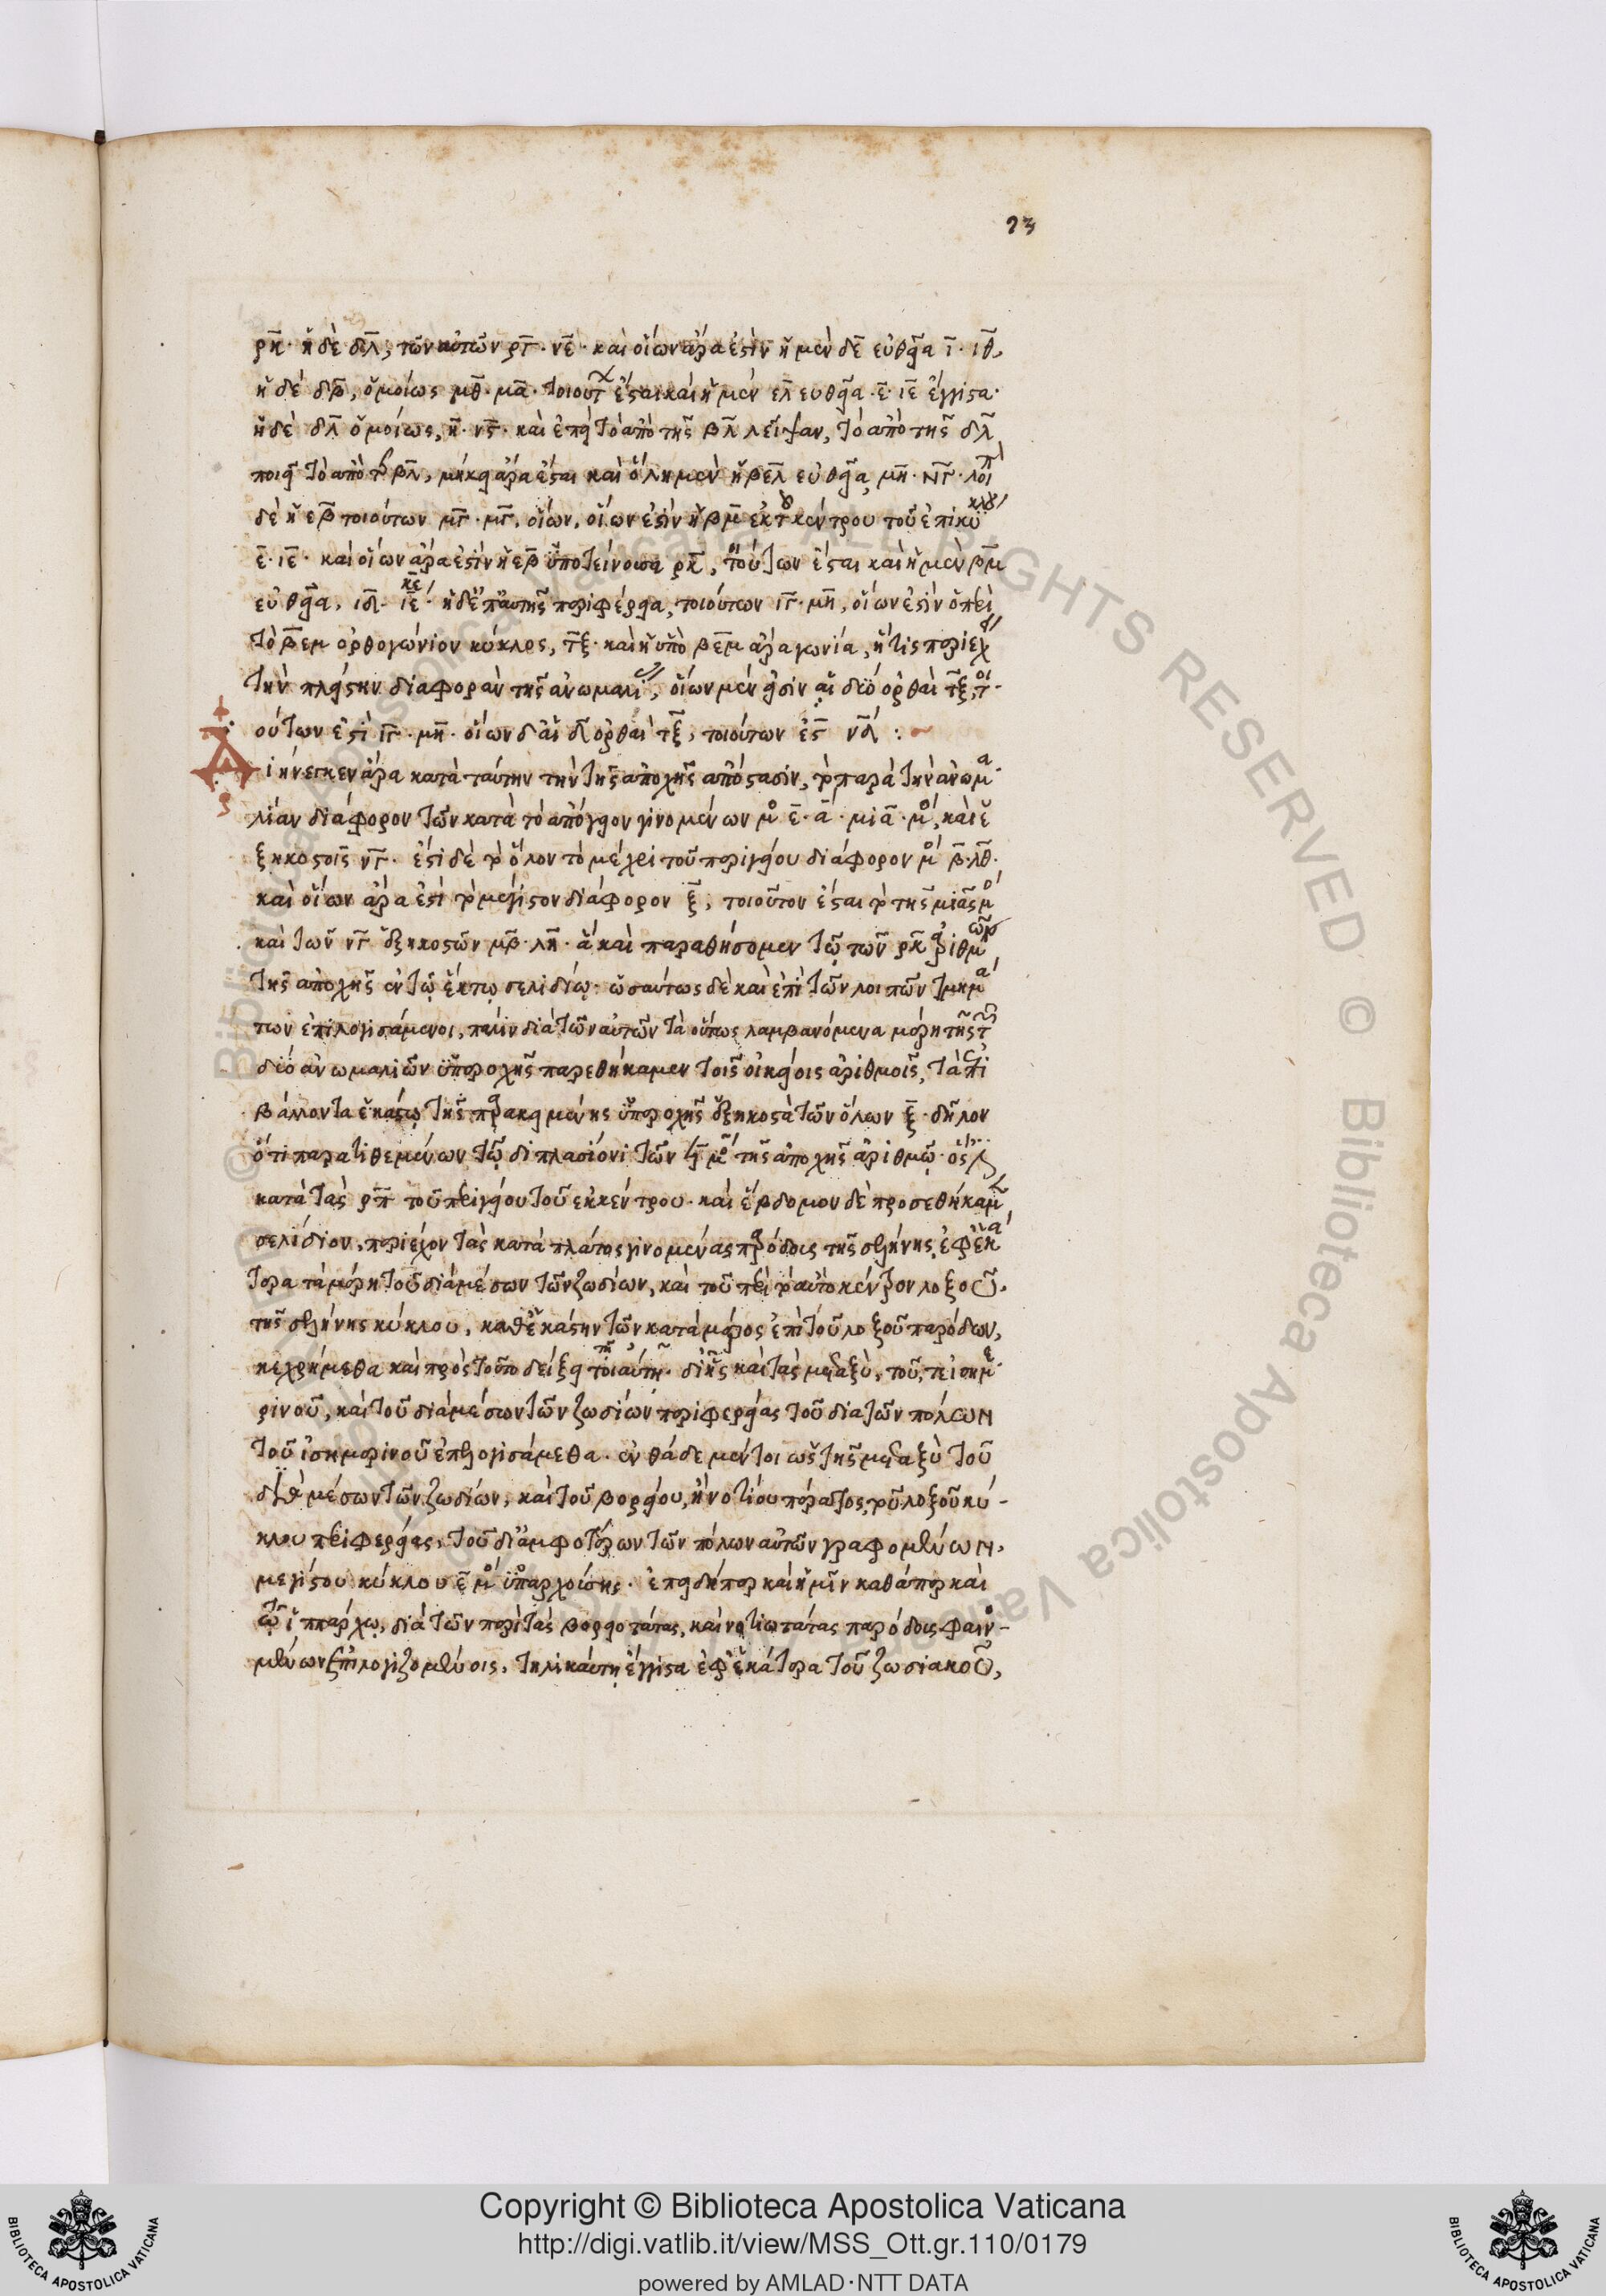 23
ρκ̅· ἡ δὲ δε̅λ̅, τῶν αὐτῶν ργ̅· νε̅· καὶ οἵων ἄρα ἐστὶν ἡ μὲν δε̅ εὐθεῖα ι̅· ιθ̅,
ἡ δὲ δβ̅, ὁμοίως μθ̅· μα̅· τοιούτ ἔσται καὶ ἡ μὲν ελ̅ εὐθεῖα ε̅· ιε̅ ἔγγιστα·
ἡ δὲ δλ̅ ὁμοίως, η̅· νϛ̅· καὶ ἐπεὶ τὸ ἀπὸ τῆς βλ̅ λεῖψαν, τὸ ἀπὸ τῆς δλ̅
ποιεῖ τὸ ἀπὸ τ βλ̅, μήκει ἄρα ἔσται καὶ ὅλη μὲν ἡ βελ̅ εὐθεῖα, μη̅· νγ̅· λοιπ
δὲ ἡ εβ̅ τοιούτων μγ̅· μγ̅, οἵων, οἵων ἐστὶν ἡ βμ̅ ἐκ τοῦ κέντρου τοῦ ἐπικύκλου
ε̅· ιε̅· καὶ οἵων ἄρα ἐστὶν ἡ εβ̅ ὑποτείνουσα ρκ̅, τούτων ἔσται καὶ ἡ μὲν βμ̅
εὐθεῖα, ιδ̅· κε ιε̅· ἡ δὲ ἐπ' αὐτῆς περιφέρεια, τοιούτων ιγ̅· μη̅, οἵων ἐστὶν ὁ περὶ
τὸ βεμ̅ ὀρθογώνιον κύκλος, τξ̅· καὶ ἡ ὑπὸ βεμ̅ ἄρα γωνία, ἥτις περιέχει
τὴν πλείστην διαφορὰν τῆς ἀνωμαλί, οἵων μέν εἰσιν αἱ δύο ὀρθαὶ τξ̅, τοι·
ούτων ἐστὶ ιγ̅· μη̅· οἵων δ' αἱ δ̅ ὀρθαὶ τξ̅, τοιούτων ἐς̅ νδ̅ :
Διήνεγκεν ἄρα κατὰ ταύτην τὴν τῆς ἀποχῆς ἀπόστασιν, τὸ παρὰ τὴν ἀνωμα·
λίαν διάφορον τῶν κατὰ τὸ ἀπόγειον γινομένων μο ε̅· α̅· μιᾶ· μο, καὶ ἑ
ξηκοστοῖς νγ̅· ἔστι δὲ τὸ ὅλον τὸ μέχρι τοῦ περιγείου διάφορον μο β̅· λθ̅·
καὶ οἵων ἄρα ἐστὶ τὸ μέγιστον διάφορον ξ̅, τοιοῦτον ἔσται τὸ τῆς μιᾶς μο
καὶ τῶν νγ̅ ἑξηκοστῶν μβ̅· λη̅· ἃ καὶ παραθήσομεν τῷ τῶν ρκ̅ ἀριθμῷ
τῆς ἀποχῆς ἐν τῷ ἕκτῳ σελιδίῳ· ὡσαύτως δὲ καὶ ἐπὶ τῶν λοιπῶν τμημά
των ἐπιλογισάμενοι, πάλιν διὰ τῶν αὐτῶν τὰ οὕτως λαμβανόμενα μέρη τῆς τ
δύο ἀνωμαλιῶν ὑπεροχῆς παρεθήκαμεν τοῖς οἰκείοις ἀριθμοῖς, τὰ ἐπι
βάλλοντα ἑκάστῳ τῆς προκειμένης ὑπεροχῆς ἑξηκοστὰ τῶν ὅλων ξ̅· δῆλον
ὅτι παρατιθεμένων τῷ διπλασίονι τῶν ϟ̅ μο τῆς ἀποχῆς ἀριθμῷ·
κατὰ τὰς ρπ̅ τοῦ περιγείου τοῦ ἐκκέντρου· καὶ ἕβδομον δὲ προσεθήκαμ
σελίδιον, περιέχον τὰς κατὰ πλάτος γινομένας παρόδους τῆς σελήνης, ἐφ' ἑκά
τερα τὰ μέρη τοῦ διὰ μέσων τῶν ζωδίων, καὶ τοῦ περὶ τὸ αὐτὸ κέντρον λοξοῦ.
τῆς σελήνης κύκλου, καθ' ἑκάστην τῶν κατὰ μέρος ἐπὶ τοῦ λοξοῦ παρόδων,
κεχρήμεθα καὶ πρὸς τοῦτο δείξει τῇ τοιαύτῃ· δι' ἧς καὶ τὰς μεταξὺ, τοῦ, τε ἰσημε·
ρινοῦ, καὶ τοῦ διὰ μέσων τῶν ζωδίων περιφερείας τοῦ διὰ τῶν πόλων
τοῦ ἰσημερινοῦ ἐπελογισάμεθα· ἐνθάδε μέντοι ὡς τῆς μεταξὺ τοῦ
διὰ μέσων τῶν ζωδίων, καὶ τοῦ βορείου, ἢ νοτίου πέρατος, τοῦ λοξοῦ κύ-
κλου περιφερείας, τοῦ δι' ἀμφοτέρων τῶν πόλων αὐτῶν γραφομένων,
μεγίστου κύκλου ε̅ μο ὑπαρχούσης· ἐπειδήπερ καὶ ἡμῖν καθάπερ καὶ
τῷ ἱππάρχῳ, διὰ τῶν περὶ τὰς βορειοτάτας, καὶ νοτιωτάτας παρόδους φαινο-
μένων ἐπιλογιζομένοις, τηλικαύτη ἔγγιστα ἐφ' ἑκάτερα τοῦ ζωδιακοῦ,
© Biblioteca Apostolica Vaticana
ALL RIGHTS RESERVED
Copyright © Biblioteca Apostolica Vaticana
http://digi.vatlib.it/view/MSS_Ott.gr.110/0179
powered by AMLAD·NTT DATA
BIBLIOTECA APOSTOLICA VATICANA
BIBLIOTECA APOSTOLICA VATICANA